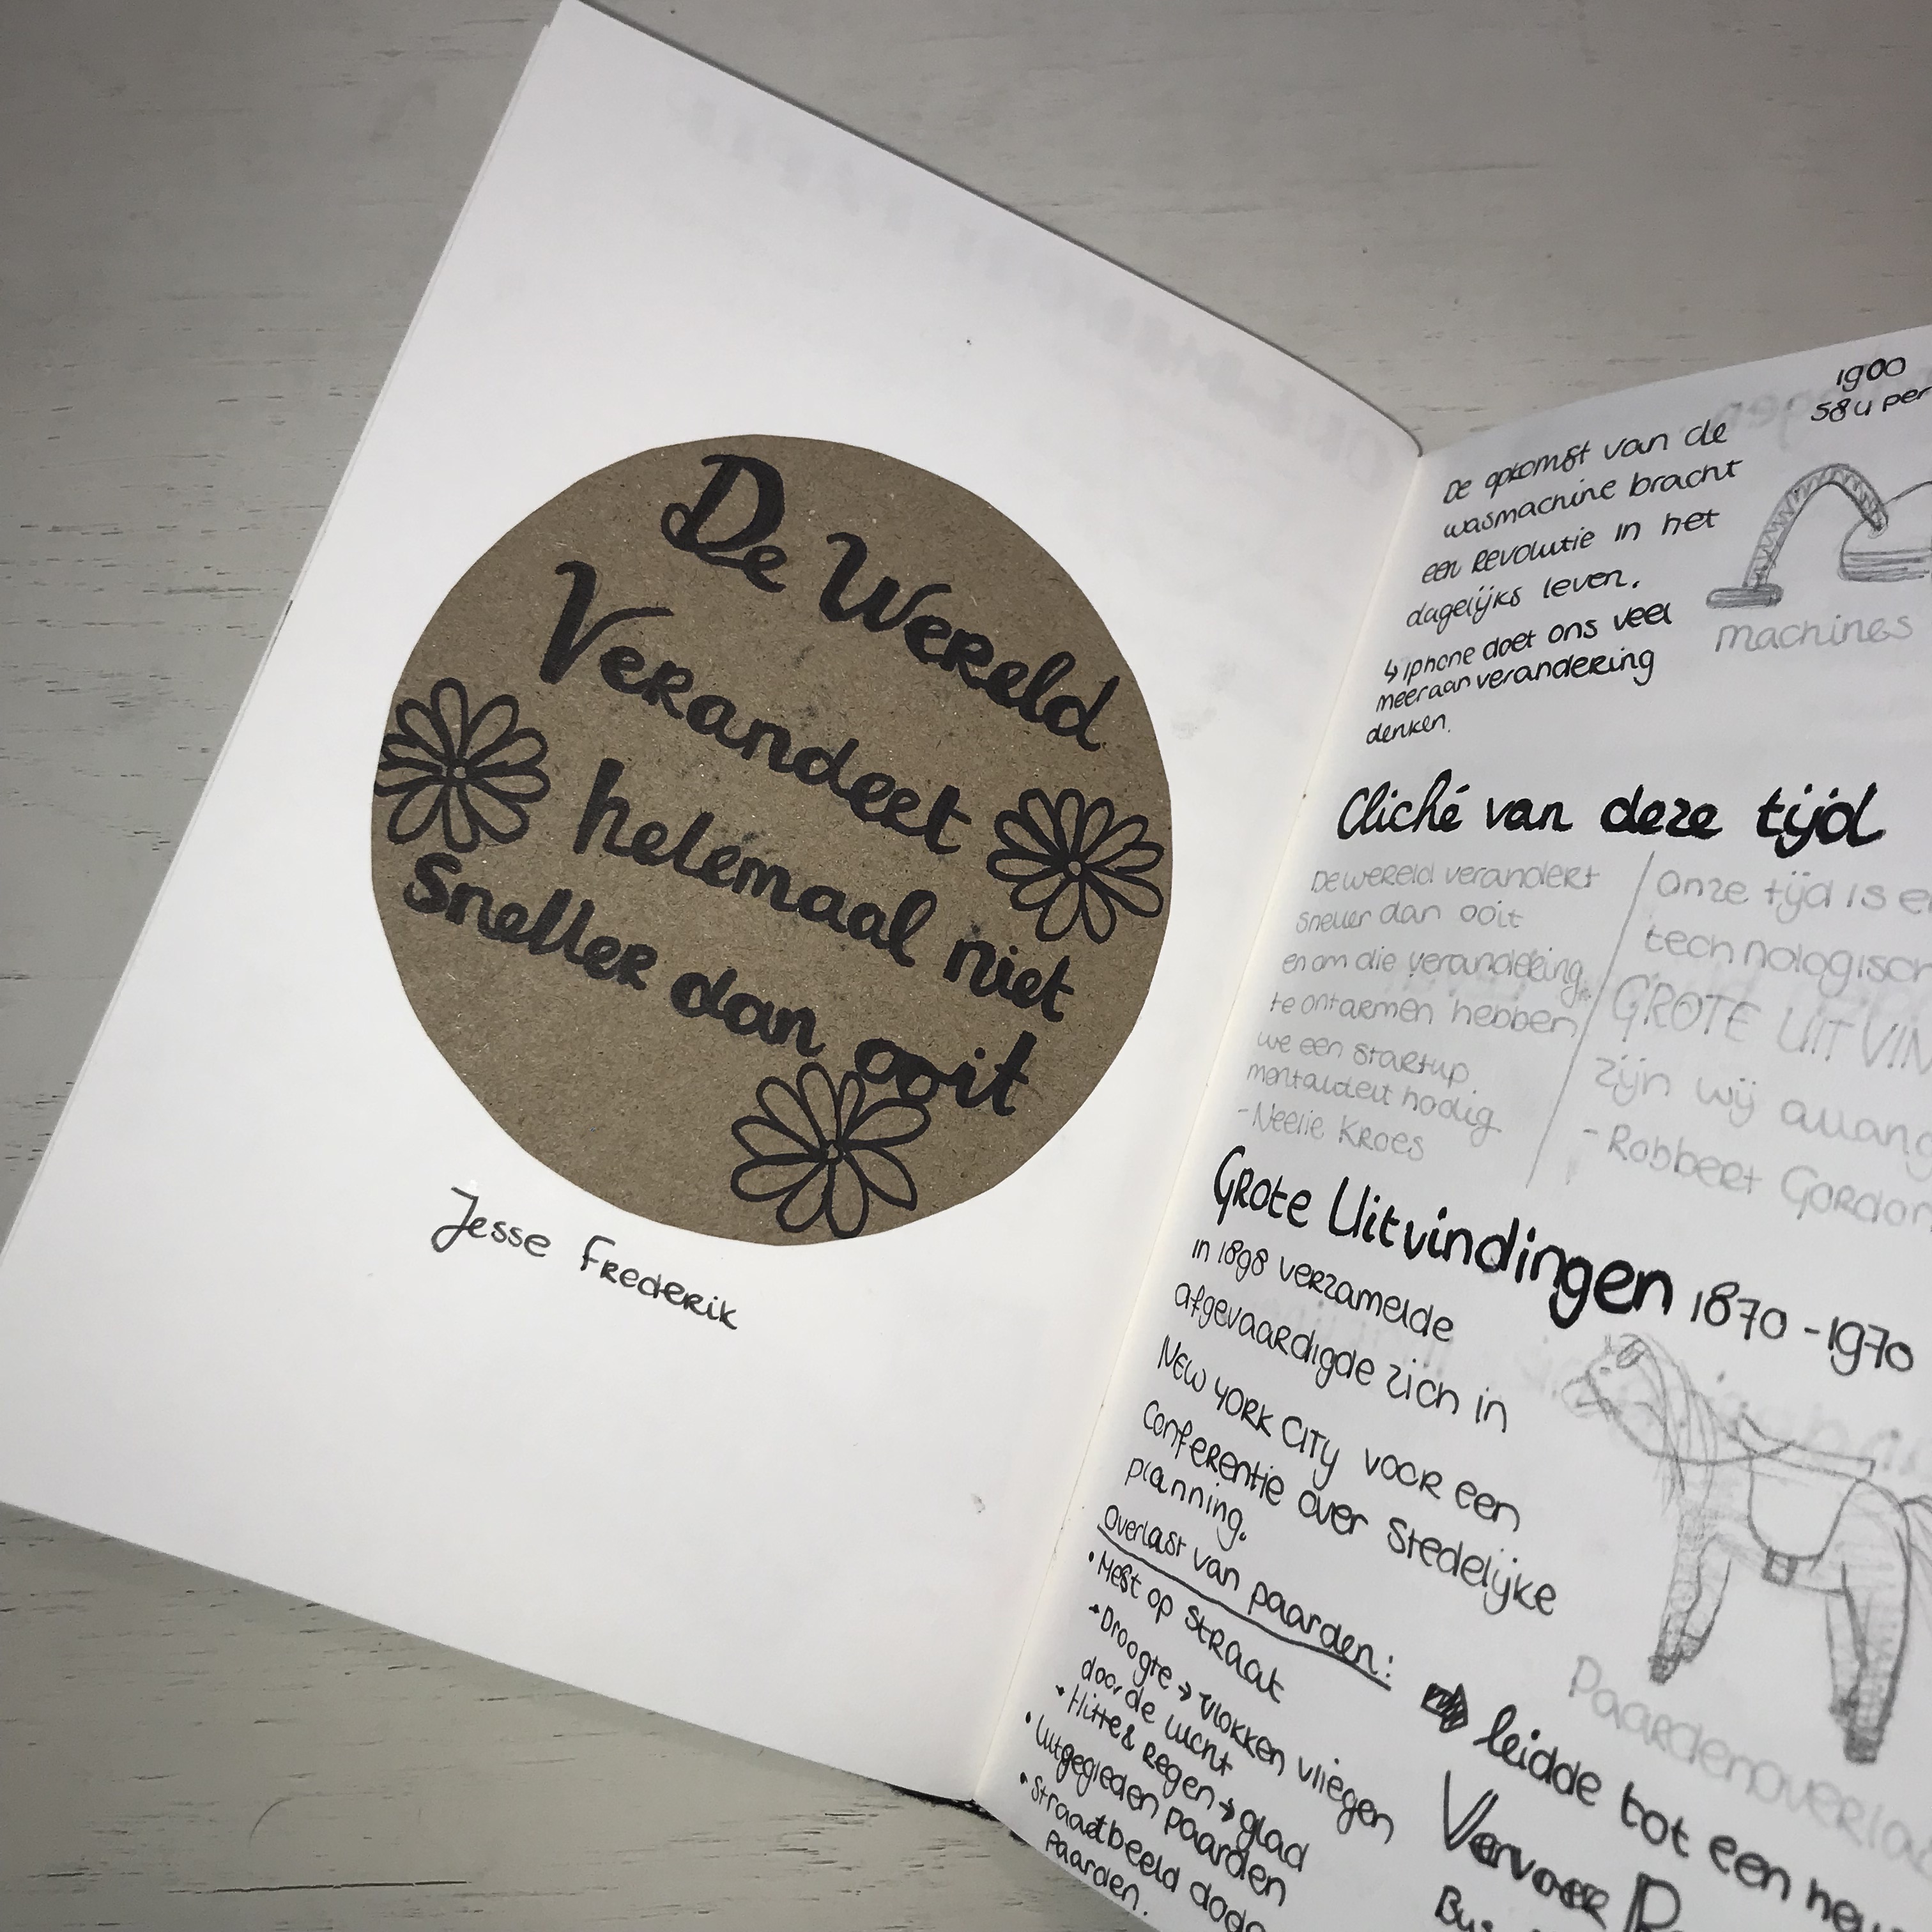 De Wereld
Verandeet
helemaal niet
Sneller dan ooit
Jesse Frederik
1900
58 u per
De opkomst van de
wasmachine bracht
een Revolutie in het
dagelijks leven.
↳ Iphone doet ons veel
meer aan verandering
denken.
machines
Cliché van deze tijd
De wereld verandert
sneller dan ooit
en om die verandering
te ontarmen hebben
we een startup
mentaliteit nodig
-Neelie Kroes
Onze tijd is
technologisch
GROTE UITVIN
zijn wij allang
- Robbert Gordon
Grote Uitvindingen 1870-1970
in 1898 verzamelde
afgevaardigde zich in
New York City voor een
Conferentie over Stedelijke
planning.
Overlast van paarden:
• Mest op straat
→ Droogte → vlokken vliegen
door de lucht
→ Hitte & Regen → glad
• Uitgegleden paarden
• Straatbeeld dode
Paarden.
Paardenoverlas
➡ leidde tot een
Vervoer
Bus